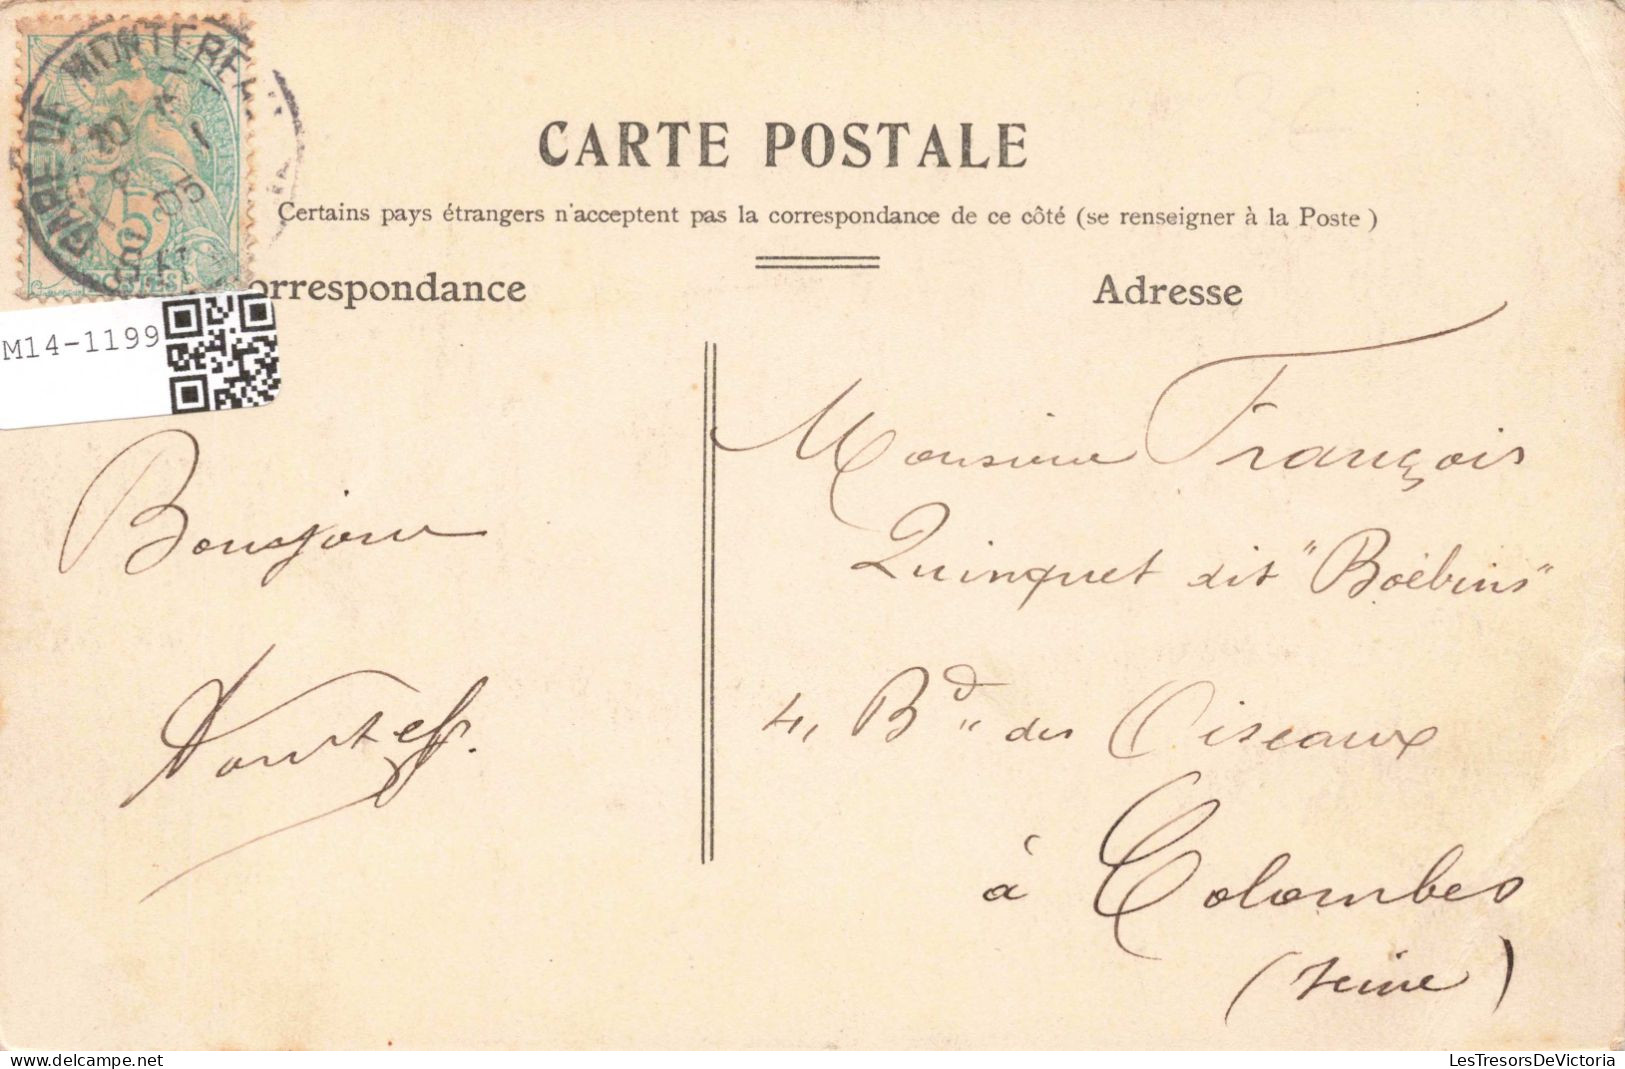 GARE DE MONTEREAU
5
POSTES
CARTE POSTALE
Certains pays étrangers n'acceptent pas la correspondance de ce côté (se renseigner à la Poste)
orrespondance
Adresse
M14-1199
Bonsjour
Monsieur François
Quinquet dit "Boëbius"
4, Bd des Oiseaux
à Colombes
(Seine)
LesTresorsDeVictoria